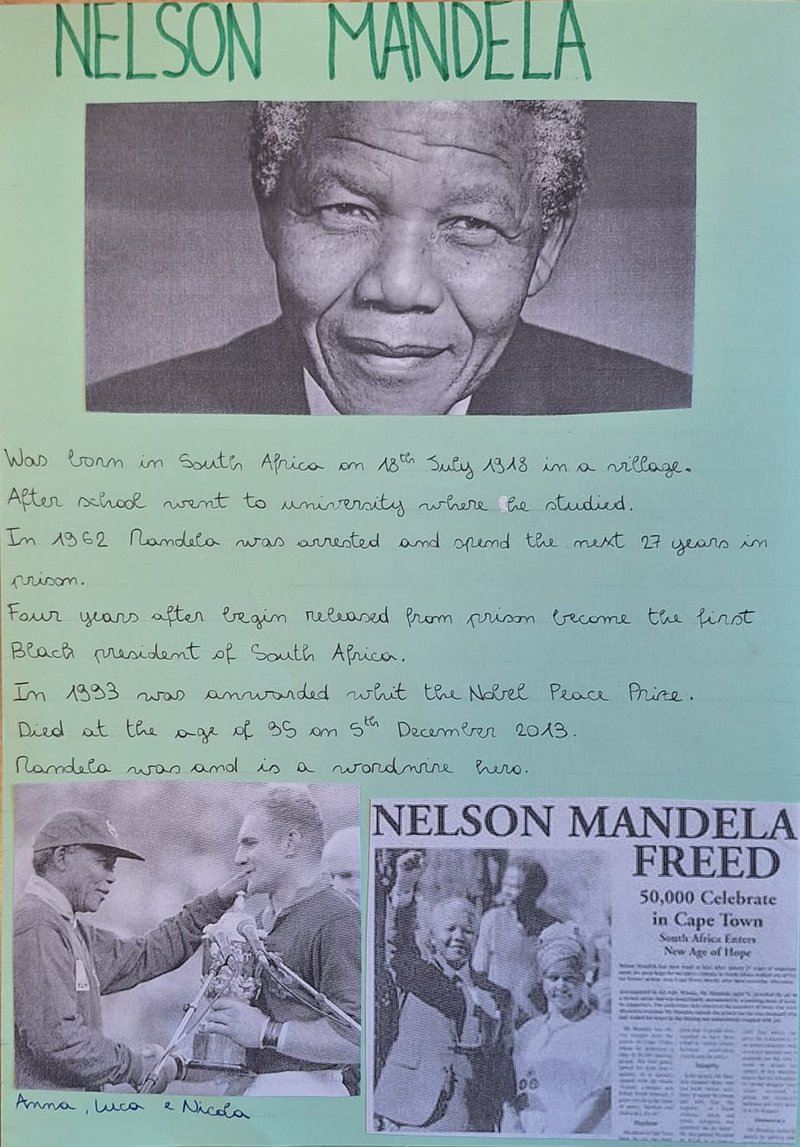 NELSON MANDELA
Was born in South Africa on 18th July 1918 in a village.
After school went to university where he studied.
In 1962 Mandela was arrested and spend the next 27 years in
prison.
Four years after begin released from prison become the first
Black president of South Africa.
In 1993 was anwarded whit the Nobel Peace Prize.
Died at the age of 95 on 5th December 2013.
Mandela was and is a wordwire hero.
NELSON MANDELA
FREED
50,000 Celebrate
in Cape Town
South Africa Enters
New Age of Hope
Anna, Luca e Nicola